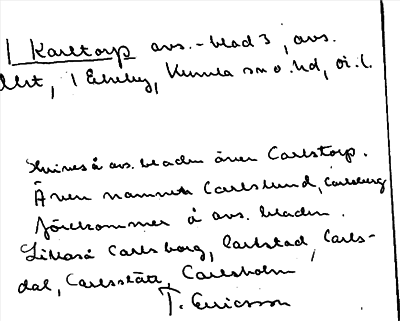 1 Karltorp avs.-blad 3, avs.
Utst, 1 Ekeby, Kumla sn o. hd, Ör. l.
Skrives å avs. bladen även Carlstorp.
Även namnen Carlslund, Carlsberg
förekommer å avs. bladen.
Likaså Carlsborg, Carlstad, Carls-
dal, Carlsslätt, Carlsholm
T. Ericsson